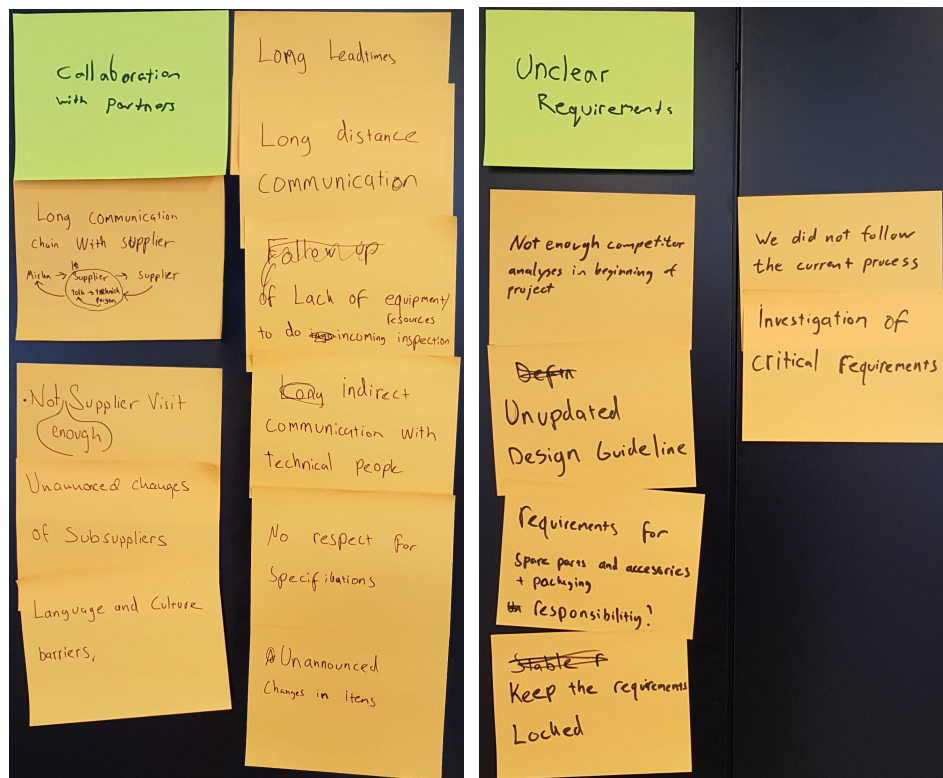 Collaboration
with partners
Long Communication
chain With Supplier
Supplier
Supplier
Talk
person
• Not enough Supplier Visit
Unannonced changes
of Subsuppliers
Language and Culture
barriers,
Long Leadtimes
Long distance
communication
Follow up
of Lack of equipment/
resources
to do incoming inspection
Long indirect
Communication with
technical people
No respect for
Specifikations
Unannounced
Changes in items
Unclear
Requirements
Not enough competitor
analyses in beginning of
project
Defin
Unupdated
Design Guideline
Requirements for
Spare parts and accessories
+ packaging
responsibilitiy?
Stable r
Keep the requirements
Locked
We did not follow
the current process
Investigation of
critical requirements